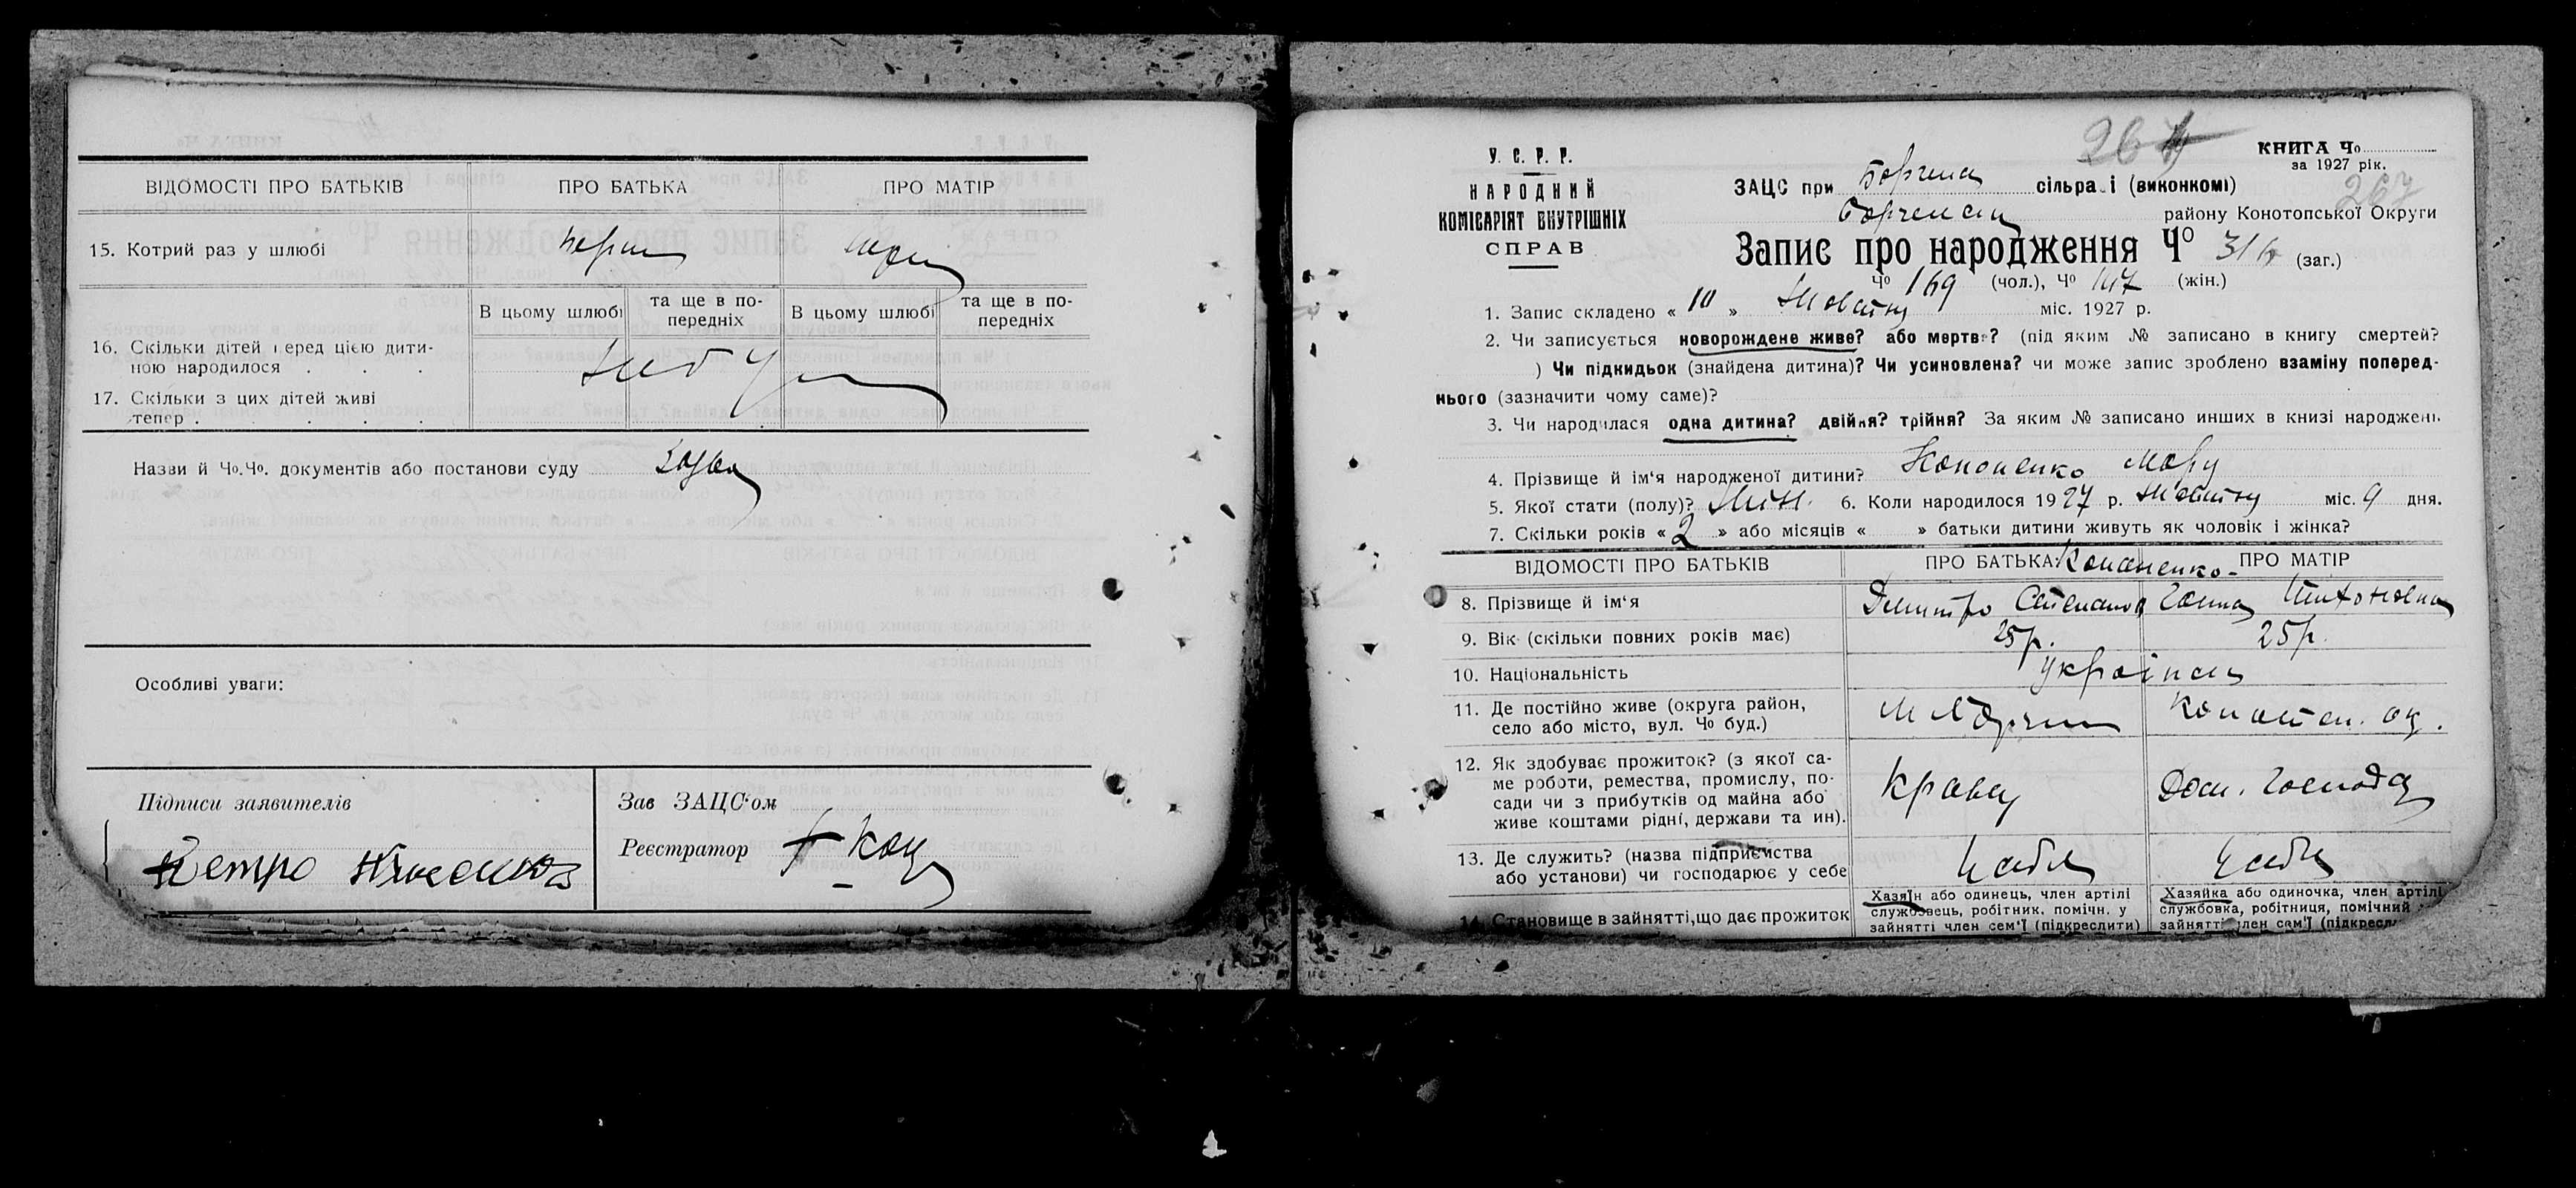 ВІДОМОСТІ ПРО БАТЬКІВ ПРО БАТЬКА ПРО МАТІР
15. Котрий раз у шлюбі перш
В цьому шлюбі та ще в по-передніх В цьому шлюбі та ще в по-передніх
16. Скільки дітей перед цією дити-
ною народилося . . .
17. Скільки з цих дітей живі
тепер . . . . .
Назви й Чо.Чо. документів або постанови суду
Особливі уваги:
Підписи заявителів
Петро
Зав ЗАЦС'ом
Реєстратор
264
КНИГА Чо
за 1927 рік.
267
У. С. Р. Р.
НАРОДНИЙ
КОМІСАРІЯТ ВНУТРІШНІХ
СПРАВ
ЗАЦС при Борзенск сільраді (виконкомі)
Борзенськ району Конотопської Округи
Запис про народження Чо 316 (заг.)
Чо 169 (чол.), Чо 147 (жін.)
1. Запис складено « 10 » Жовтня міс. 1927 р.
2. Чи записується новорождене живе? або мертве? (під яким № записано в книгу смертей?
) Чи підкидьок (знайдена дитина)? Чи усиновлена? чи може запис зроблено взаміну поперед-
нього (зазначити чому саме)?
3. Чи народилася одна дитина? двійня? трійня? За яким № записано инших в книзі народжень.
4. Прізвище й ім'я народженої дитини? Кононенко
5. Якої стати (полу)? Жін. 6. Коли народилося 1927 р. Жовтня міс. 9 дня.
7. Скільки років « 2 » або місяців « » батьки дитини живуть як чоловік і жінка?
ВІДОМОСТІ ПРО БАТЬКІВ ПРО БАТЬКА Кононенко ПРО МАТІР
8. Прізвище й ім'я Дмитро Степанов Ганна Тихоновна
9. Вік (скільки повних років має) 25р. 25р.
10. Національність українц
11. Де постійно живе (округа район,
село або місто, вул. Чо буд.) м Борзна Конотоп. ок.
12. Як здобуває прожиток? (з якої са-
ме роботи, ремества, промислу, по-
сади чи з прибутків од майна або
живе коштами рідні, держави та ин). Кравец Дом. Господа
13. Де служить? (назва підприємства
або установи) чи господарює у себе У себе У себе
14. Становище в зайнятті, що дає прожиток
Хазяїн або одинець, член артілі
службовець, робітник. помічн. у
зайнятті член сем'ї (підкреслити)
Хазяйка або одиночка, член артілі
службовка, робітниця, помічний
зайнятті член сем'ї (підкресл